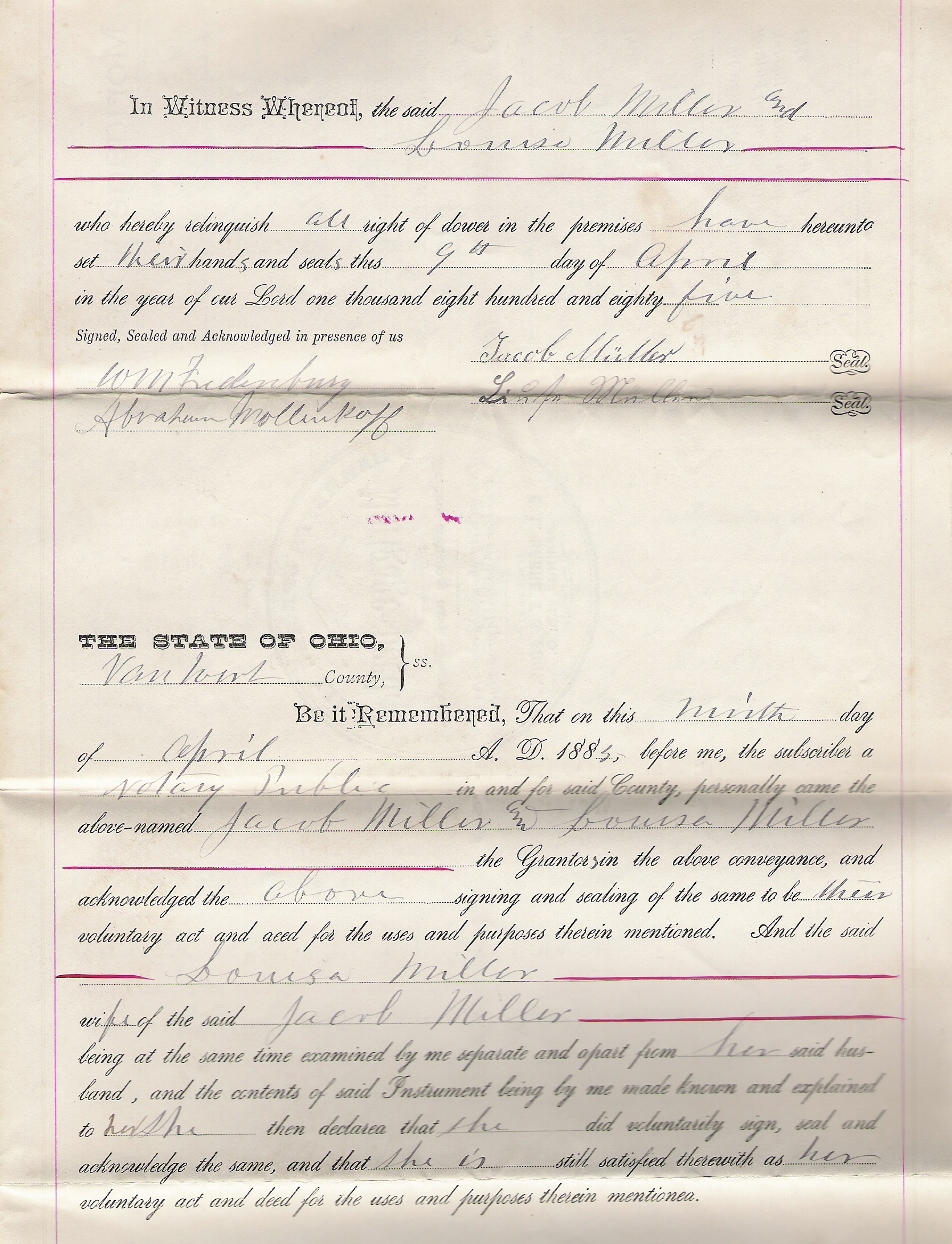 In Witness Whereof, the said Jacob Miller and
Louisa Miller
who hereby relinquish all right of dower in the premises have hereunto
set their hands and seals this 9th day of April
in the year of our Lord one thousand eight hundred and eighty five
Signed, Sealed and Acknowledged in presence of us
Jacob Müller Seal.
Wm Fredenburg
Miller Seal.
Abraham Mollenkoff
THE STATE OF OHIO,
Van Wert County, } ss.
Be it Remembered, That on this ninth day
of April A. D. 1885, before me, the subscriber a
Notary Public in and for said County, personally came the
above-named Jacob Miller and Louisa Miller
the Grantors in the above conveyance, and
acknowledged the above signing and sealing of the same to be their
voluntary act and deed for the uses and purposes therein mentioned. And the said
Louisa Miller
wife of the said Jacob Miller
being at the same time examined by me separate and apart from her said hus-
band, and the contents of said Instrument being by me made known and explained
to her she then declared that she did voluntarily sign, seal and
acknowledge the same, and that she is still satisfied therewith as her
voluntary act and deed for the uses and purposes therein mentioned.